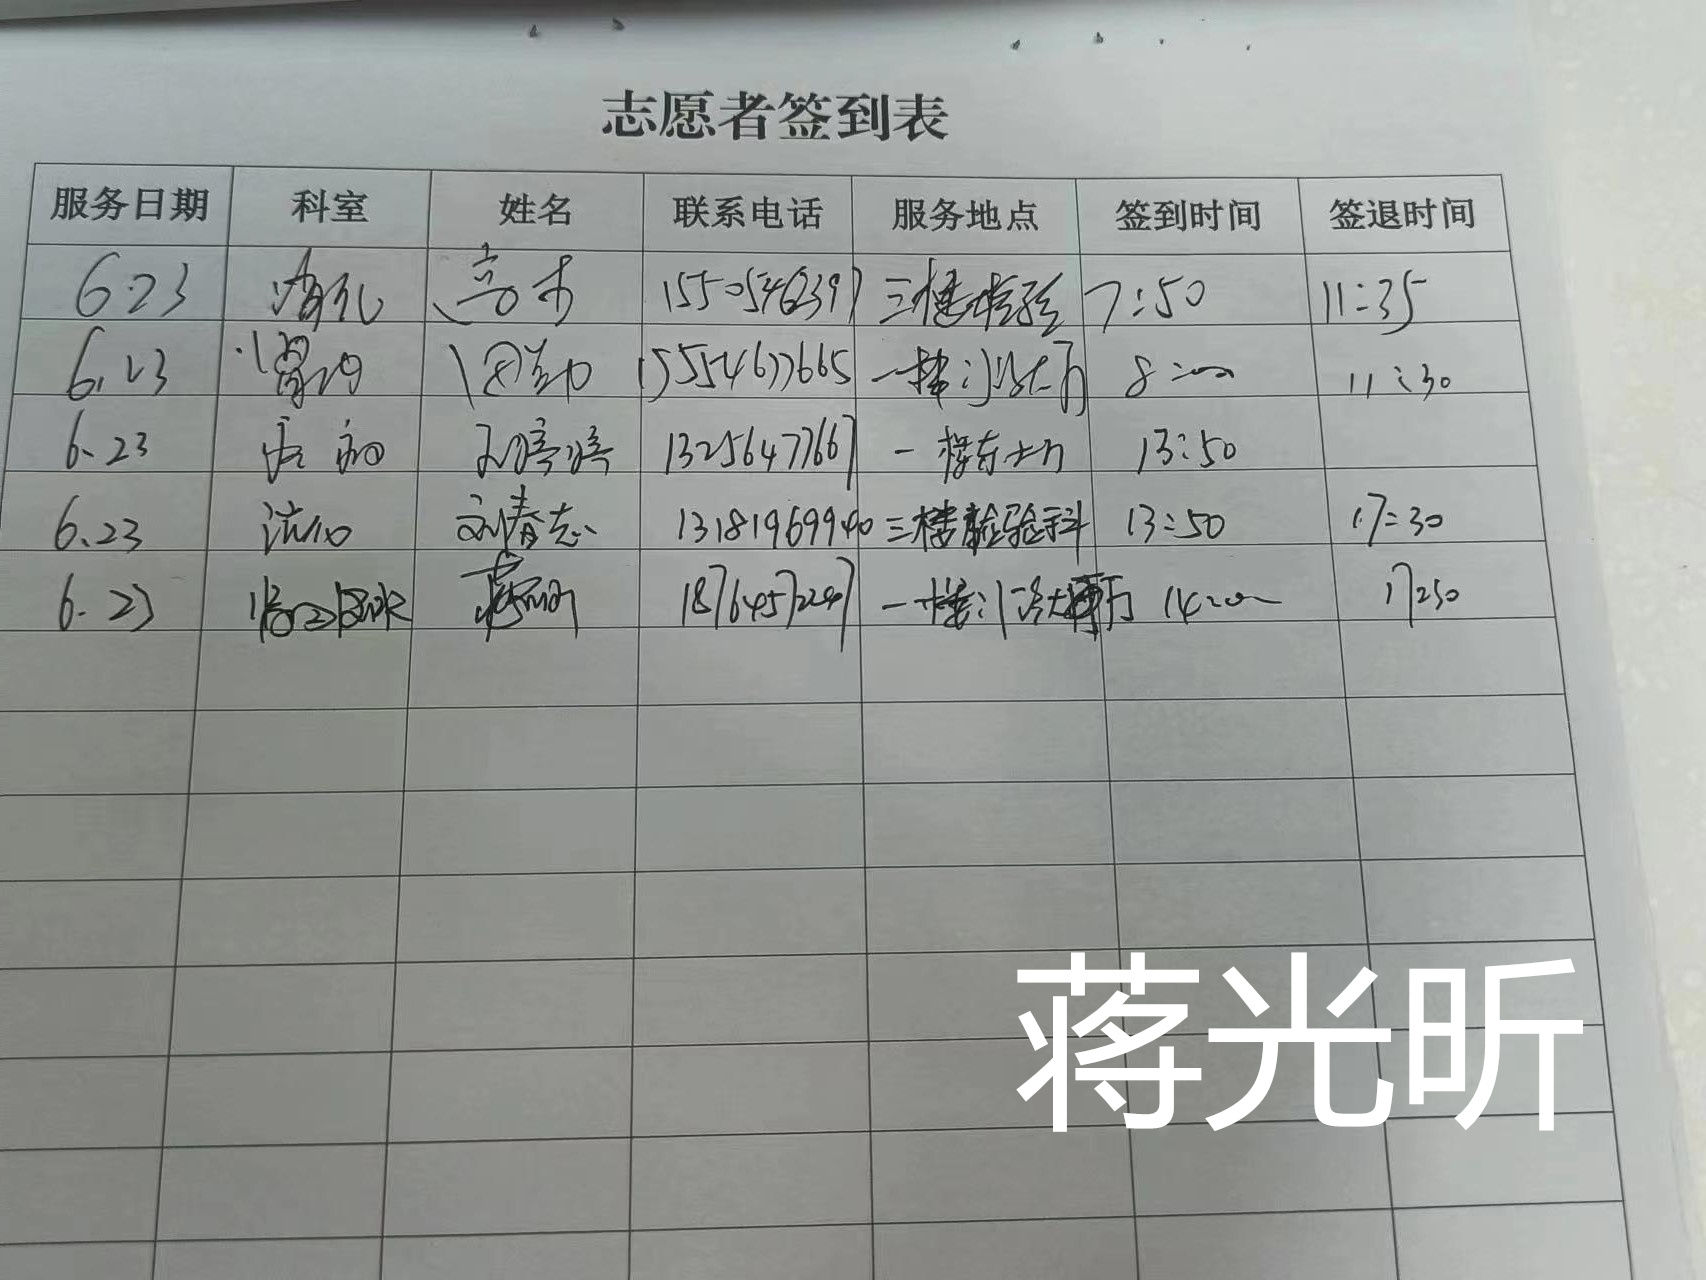 志愿者签到表
服务日期 科室 姓名 联系电话 服务地点 签到时间 签退时间
6.23 三楼检验 7:50 11:35
6.23 15554677665 一楼门诊大厅 8:00 11:30
6.23 13256477667 一楼东大厅 13:50
6.23 刘春志 13181969940 三楼检验科 13:50 17:30
6.23 18764572247 一楼门诊大厅 14:00 17:30
蒋光昕